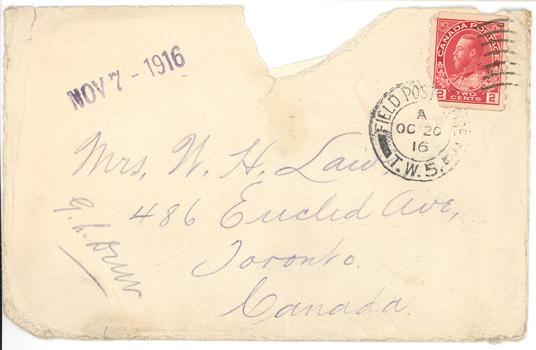 NOV 7 - 1916
CANADA POSTAGE
2 TWO CENTS 2
FIELD POST
A
OC 20
16
T.W.5.
Mrs. W. H. Law,
486 Euclid Ave,
Toronto.
Canada.